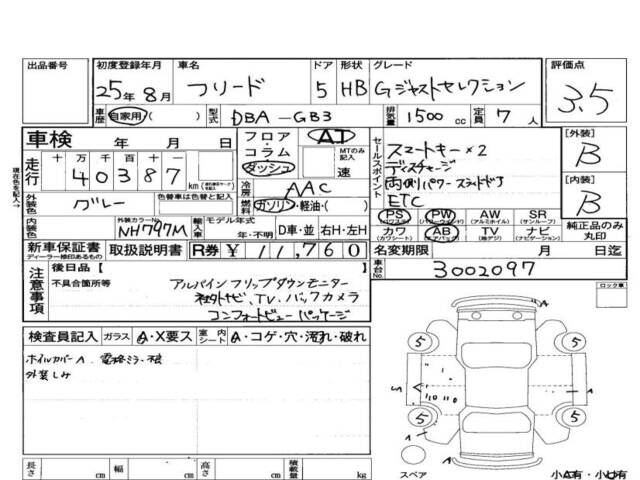 出品番号
初度登録年月 車名 ドア 形状 グレード 評価点
25年8月 フリード 5 HB Gジャストセレクション 3.5
車歴 自家用・( ) 型式 DBA-GB3 排気量 1500 cc 定員 7 人
車検 年 月 日
フロア・コラム・ダッシュ AT
MTのみ記入 速
走行 十 万 千 百 十
40387 km
冷房 AAC
燃料 ガソリン・軽油・( )
現在色を記入→
外装色 グレー 色替車は色替と記入
内装色 外装カラーNo. NH797M
輸入車 モデル年式 年・不明 D車・並 右H・左H
セールスポイント
スマートキー×2
ディスチャージ
両側パワースライドドア
ETC
PS (パワステ) PW (パワーウインド) AW (アルミホイル) SR (サンルーフ)
カワ (カワシート) AB (エアバック) TV (純正) ナビ (ナビゲーション)
[外装] B
[内装] B
純正品のみ丸印
新車保証書 ディーラー捺印あるもの 取扱説明書 R券 ¥11,760
名変期限 月 日迄
車台No. 3002097
注意事項
後日品【 】
不具合箇所等
アルパインフリップダウンモニター
社外ナビ、TV、バックカメラ
コンフォートビューパッケージ
ロック車
検査員記入 ガラス A・X要ス 室内シート A・コゲ・穴・汚れ・破れ
ホイルカバーA 電格ミラー
外装しみ
A
5 5
S A
5 5
A
スペア
小A有・小U有
長さ cm 幅 cm 高さ cm 積載量 kg